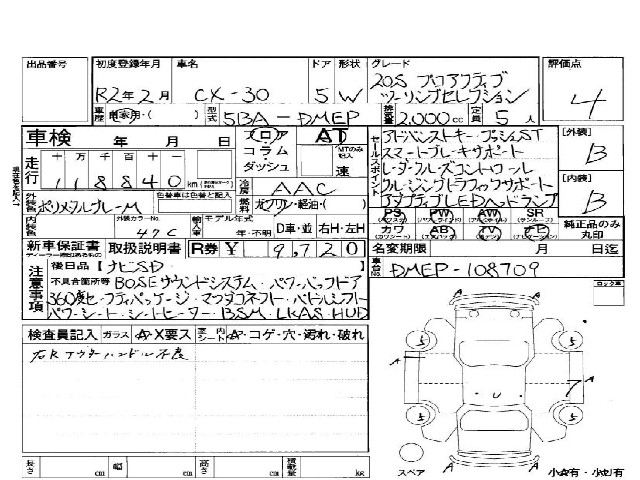 出品番号 初度登録年月 車名 ドア 形状 グレード 評価点
R2年2月 CX-30 5 W 20S プロアクティブ
ツーリングセレクション 4
車歴 自家用・( ) 型式 5BA-DMEP 排気量 2,000cc 定員 5人
車検 年 月 日 フロア AT
コラム MTのみ記入
ダッシュ 速
走行 十万 千百十 118840 km
セールスポイント アドバンストキー・プッシュST
スマートブレーキサポート
レーダークルーズコントロール
クルージングトラフィックサポート
アダプティブLEDヘッドランプ
[外装] B
[内装] B
外装色 ポリメタルグレーM 色替車は色替と記入 冷房 AAC
燃料 ガソリン・軽油・( )
内装色 外装カラーNo. 47C 輸入車 モデル年式 年・不明 D車・並 右H・左H
PS PW AW SR
カワ AB TV ナビ 純正品のみ丸印
新車保証書 取扱説明書 R券 ¥ 9,720 名変期限 月 日迄
注意事項 後日品【ナビSD 】
不具合箇所等 BOSEサウンドシステム・パワーバックドア
360度セーフティパッケージ・マツダコネクト・パドルシフト
パワーシート・シートヒーター・BSM・LKAS・HUD
車台No. DMEP-108709
検査員記入 ガラス A・X要ス 室内シート A・コゲ・穴・汚れ・破れ
右Rアウターハンドル不良
ロック車
5 5
A A
U 7
5 5
A A
長さ cm 幅 cm 高さ cm 積載量 kg
スペア 小A有・小U有